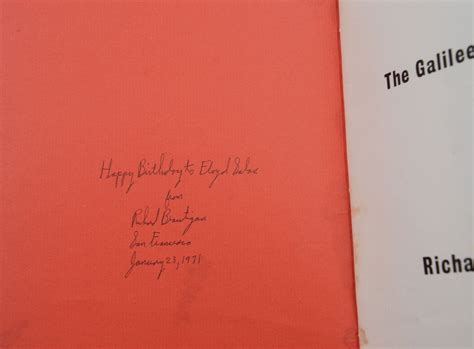 Happy Birthday to Floyd Salas
from
Richard Brautigan
San Francisco
January 23, 1971
The Galilee
Richa